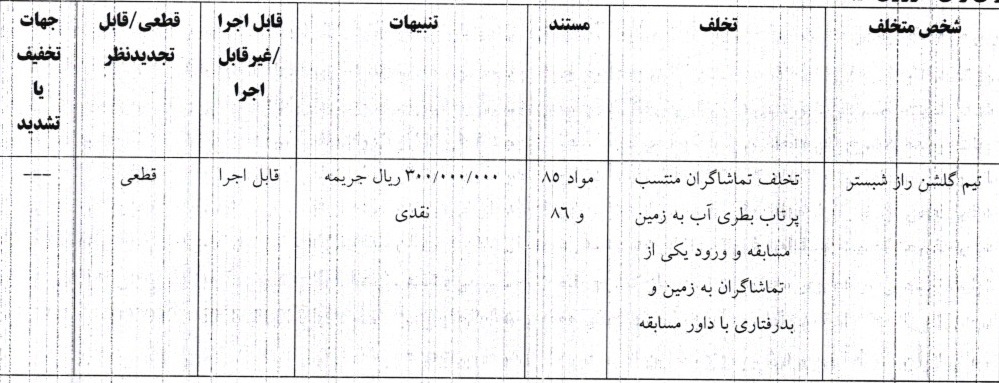 شخص متخلف
تخلف
مستند
تنبیهات
قابل اجرا
/غیرقابل
اجرا
قطعی/قابل
تجدیدنظر
جهات
تخفیف
یا
تشدید
تیم گلشن راز شبستر
تخلف تماشاگران منتسب
پرتاب بطری آب به زمین
مسابقه و ورود یکی از
تماشاگران به زمین و
بدرفتاری با داور مسابقه
مواد ۸۵
و ۸۶
۳۰۰/۰۰۰/۰۰۰ ریال جریمه
نقدی
قابل اجرا
قطعی
---